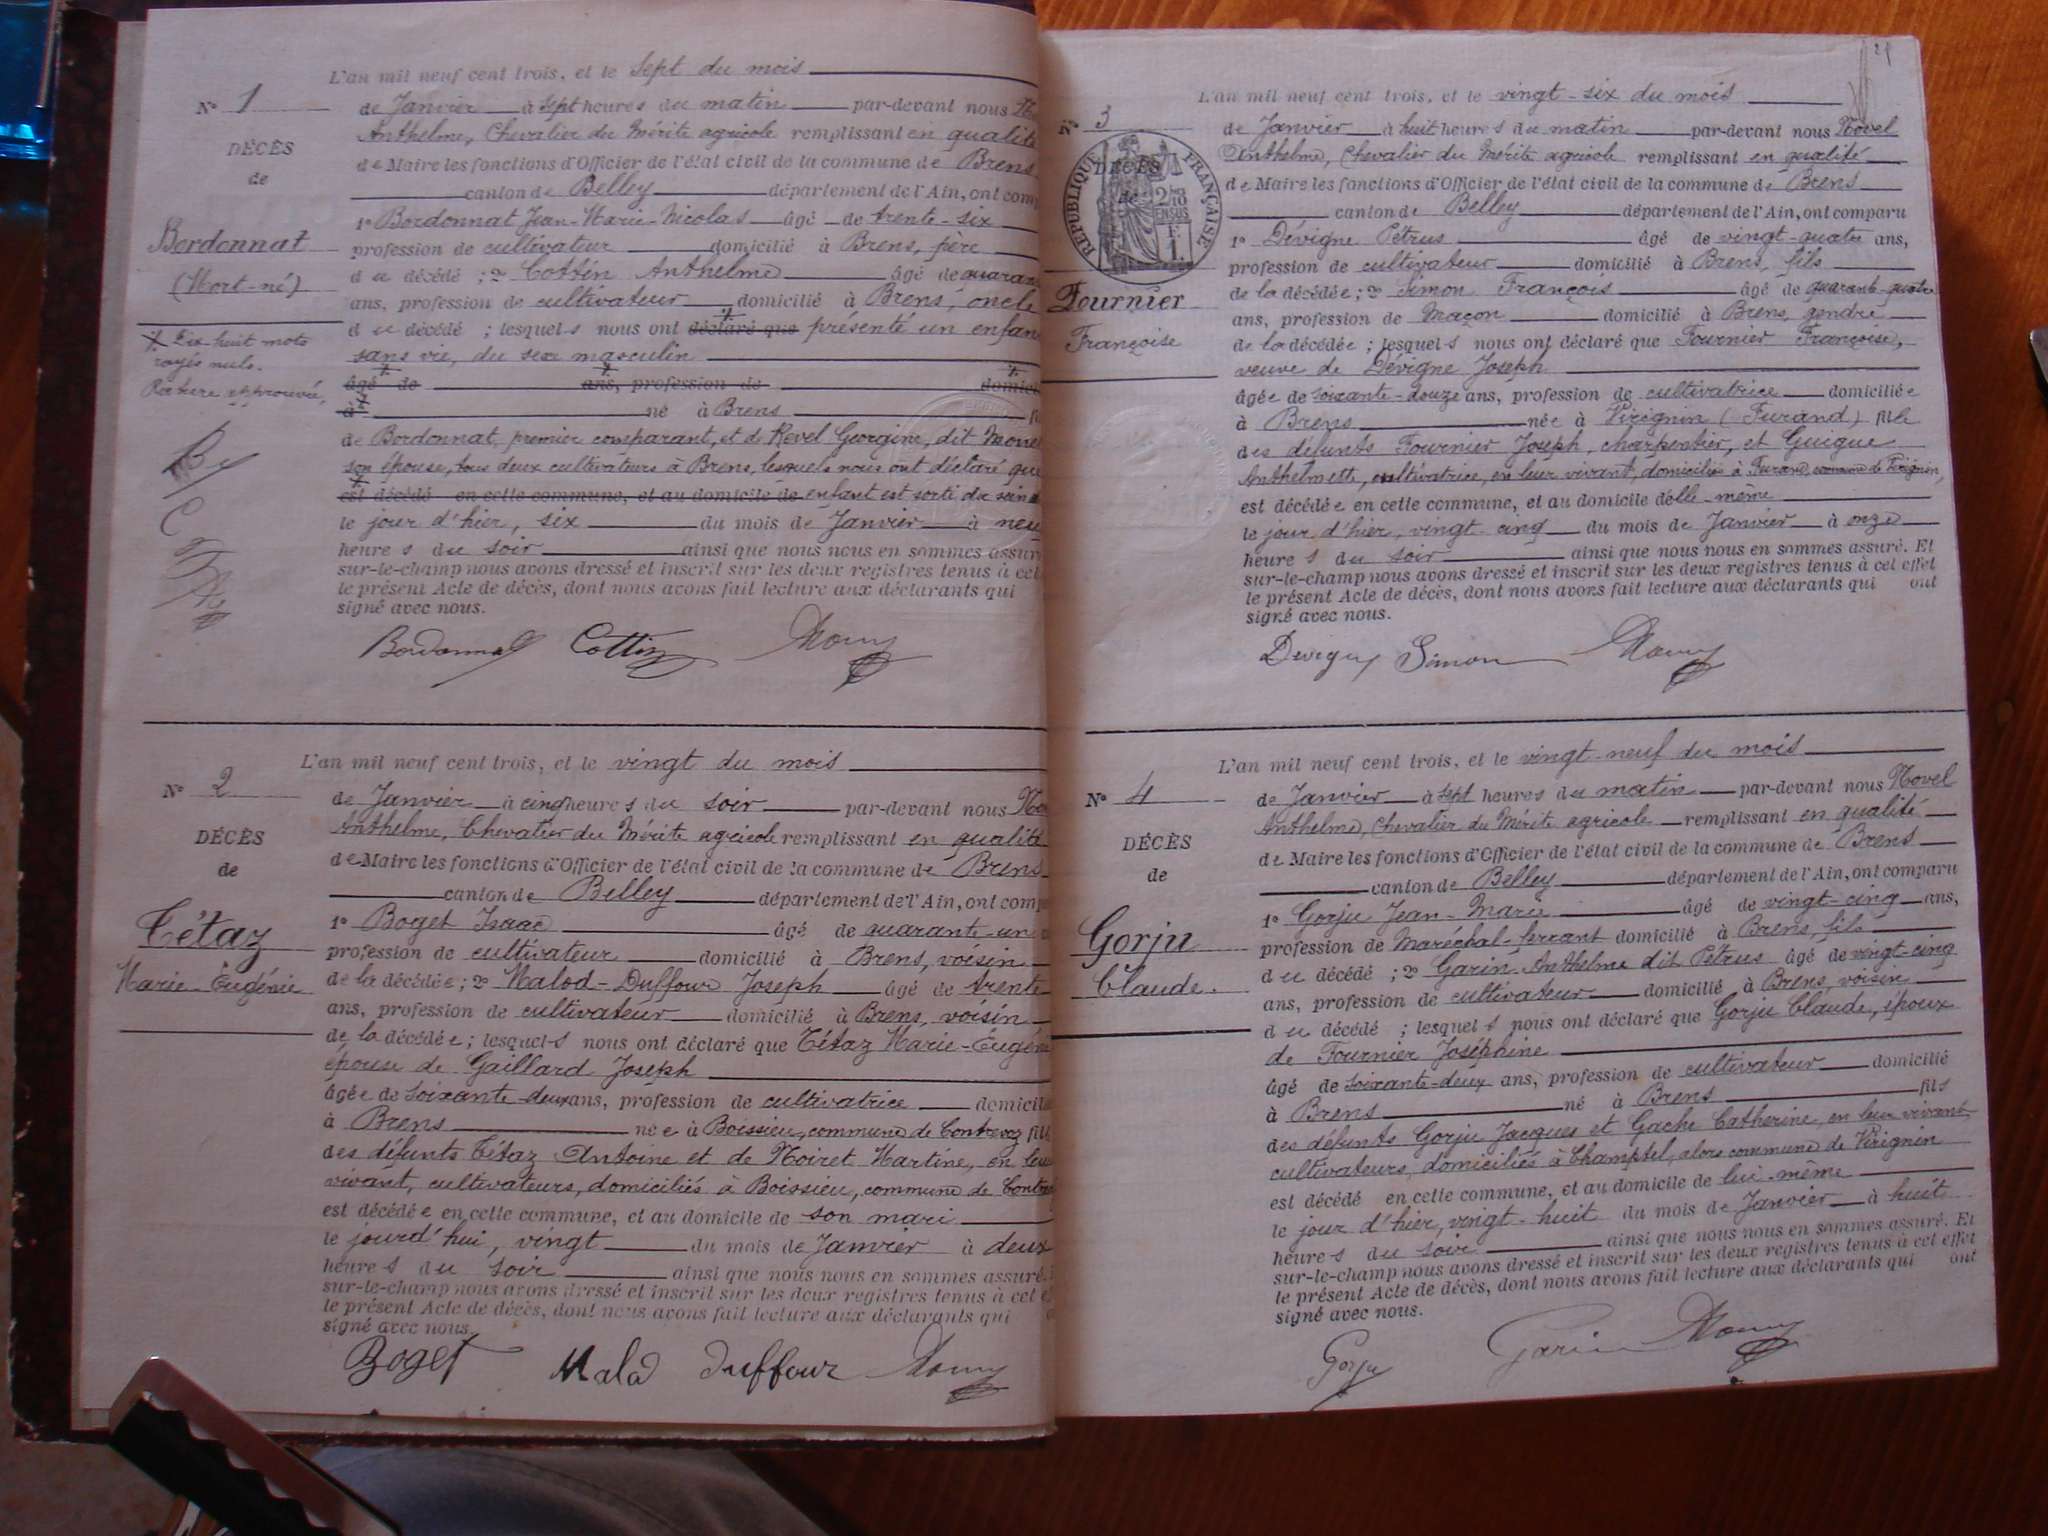 L'an mil neuf cent trois, et le Sept du mois
N° 1
de Janvier à Sept heures du matin par-devant nous
Anthelme, Chevalier du Mérite agricole remplissant en qualité
DÉCÈS
de Maire les fonctions d'Officier de l'état civil de la commune de Brens
de
canton de Belley département de l'Ain, ont
1° Bordonnat Jean-Marie-Nicolas âgé de trente-six
Bordonnat
profession de cultivateur domicilié à Brens, père
(Mort-né)
du décédé ; 2° Cottin Anthelme âgé de
ans, profession de cultivateur domicilié à Brens, oncle
du décédé ; lesquels nous ont déclaré que présenté un
Dix-huit mots
rayés nuls.
sans vie, du sexe masculin
Rature approuvée,
âgé de ans, profession de
à né à Brens
de Bordonnat, premier comparant, et de Revel Georgine, dit
son épouse, tous deux cultivateurs à Brens, lesquels nous ont déclaré que
est décédé en cette commune, et au domicile de enfant est sorti du sein
le jour d'hier, six du mois de Janvier à
heures du soir ainsi que nous nous en sommes
sur-le-champ nous avons dressé et inscrit sur les deux registres tenus à cet
le présent Acte de décès, dont nous avons fait lecture aux déclarants qui
signé avec nous.
Bordonnat Cottin
L'an mil neuf cent trois, et le vingt du mois
N° 2
de Janvier à cinq heures du soir par-devant nous
Anthelme, Chevalier du Mérite agricole remplissant en qualité
DÉCÈS
de Maire les fonctions d'Officier de l'état civil de la commune de Brens
de
canton de Belley département de l'Ain, ont
1° Boget Isaac âgé de quarante-un
Tétaz
profession de cultivateur domicilié à Brens, voisin
Marie-Eugénie
de la décédée ; 2° Malod-Duffour Joseph âgé de trente
ans, profession de cultivateur domicilié à Brens, voisin
de la décédée ; lesquels nous ont déclaré que Tétaz Marie-Eugénie
épouse de Gaillard Joseph
âgée de soixante-deux ans, profession de cultivatrice
à Brens née à Boissieu, commune de Contrevoz
des défunts Tétaz Antoine et de Moiret Martine, en leur
vivant, cultivateurs, domiciliés à Boissieu, commune de
est décédée en cette commune, et au domicile de son mari
le jourd'hui, vingt du mois de Janvier à deux
heures du soir ainsi que nous nous en sommes assuré.
sur-le-champ nous avons dressé et inscrit sur les deux registres tenus à cet
le présent Acte de décès, dont nous avons fait lecture aux déclarants qui
signé avec nous.
Boget Malod Duffour
L'an mil neuf cent trois, et le vingt-six du mois
N° 3
de Janvier à huit heures du matin par-devant nous
Anthelme, Chevalier du Mérite agricole remplissant en qualité
DÉCÈS
de Maire les fonctions d'Officier de l'état civil de la commune de Brens
de
RÉPUBLIQUE FRANÇAISE
canton de Belley département de l'Ain, ont comparu
1° Dévigne Pétrus âgé de vingt-quatre ans,
profession de cultivateur domicilié à Brens, fils
Fournier
de la décédée ; 2° Simon François âgé de quarante-quatre
ans, profession de Maçon domicilié à Brens, gendre
Françoise
de la décédée ; lesquels nous ont déclaré que Fournier Françoise,
veuve de Dévigne Joseph
âgée de soixante-douze ans, profession de cultivatrice domiciliée
à Brens née à Virignin (Furand) fille
des défunts Fournier Joseph, charpentier, et Guigue
Anthelmette, cultivatrice, en leur vivant, domiciliés à Furand, commune de Virignin,
est décédée en cette commune, et au domicile d'elle-même
le jour d'hier, vingt-cinq du mois de Janvier à onze
heures du soir ainsi que nous nous en sommes assuré. Et
sur-le-champ nous avons dressé et inscrit sur les deux registres tenus à cet effet
le présent Acte de décès, dont nous avons fait lecture aux déclarants qui ont
signé avec nous.
Devigne Simon
L'an mil neuf cent trois, et le vingt-neuf du mois
N° 4
de Janvier à sept heures du matin par-devant nous
Anthelme, Chevalier du Mérite agricole remplissant en qualité
DÉCÈS
de Maire les fonctions d'Officier de l'état civil de la commune de Brens
de
canton de Belley département de l'Ain, ont comparu
1° Gorju Jean-Marie âgé de vingt-cinq ans,
Gorju
profession de Maréchal-ferrant domicilié à Brens, fils
du décédé ; 2° Garin Anthelme dit Pétrus âgé de vingt-cinq
Claude.
ans, profession de cultivateur domicilié à Brens, voisin
du décédé ; lesquels nous ont déclaré que Gorju Claude, époux
de Fournier Joséphine
âgé de soixante-deux ans, profession de cultivateur domicilié
à Brens né à Brens fils
des défunts Gorju Jacques et Gache Catherine, en leur vivant,
cultivateurs, domiciliés à Champtel, alors commune de Virignin
est décédé en cette commune, et au domicile de lui-même
le jour d'hier, vingt-huit du mois de Janvier à huit
heures du soir ainsi que nous nous en sommes assuré. Et
sur-le-champ nous avons dressé et inscrit sur les deux registres tenus à cet effet
le présent Acte de décès, dont nous avons fait lecture aux déclarants qui ont
signé avec nous.
Gorju Garin